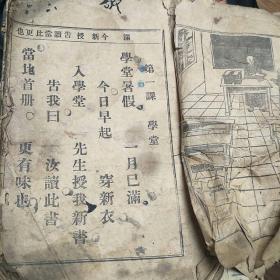 滿今新授告讀當此更也
第 課 學堂
學堂暑假 一月已滿
今日早起 穿新衣
入學堂 先生授我新書
告我曰 汝讀此書
當比首册 更有味也